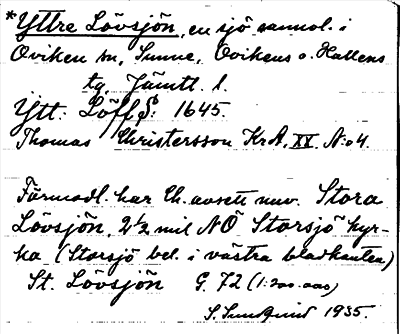 *Yttre Lövsjön, en sjö sannol. i
Oviken sn, Sunne, Ovikens o. Hallens
tg, Jämtl. l.
Ytt: Löff S: 1645.
Thomas Christersson KrA, XX. N:o 4.
Förmodl. har Ch. avsett nuv. Stora
Lövsjön, 2½ mil NÖ Storsjö kyr-
ka (Storsjö bel. i västra bladkanten)
St. Lövsjön G. 72 (1:200.000)
S. Sundqvist 1935.